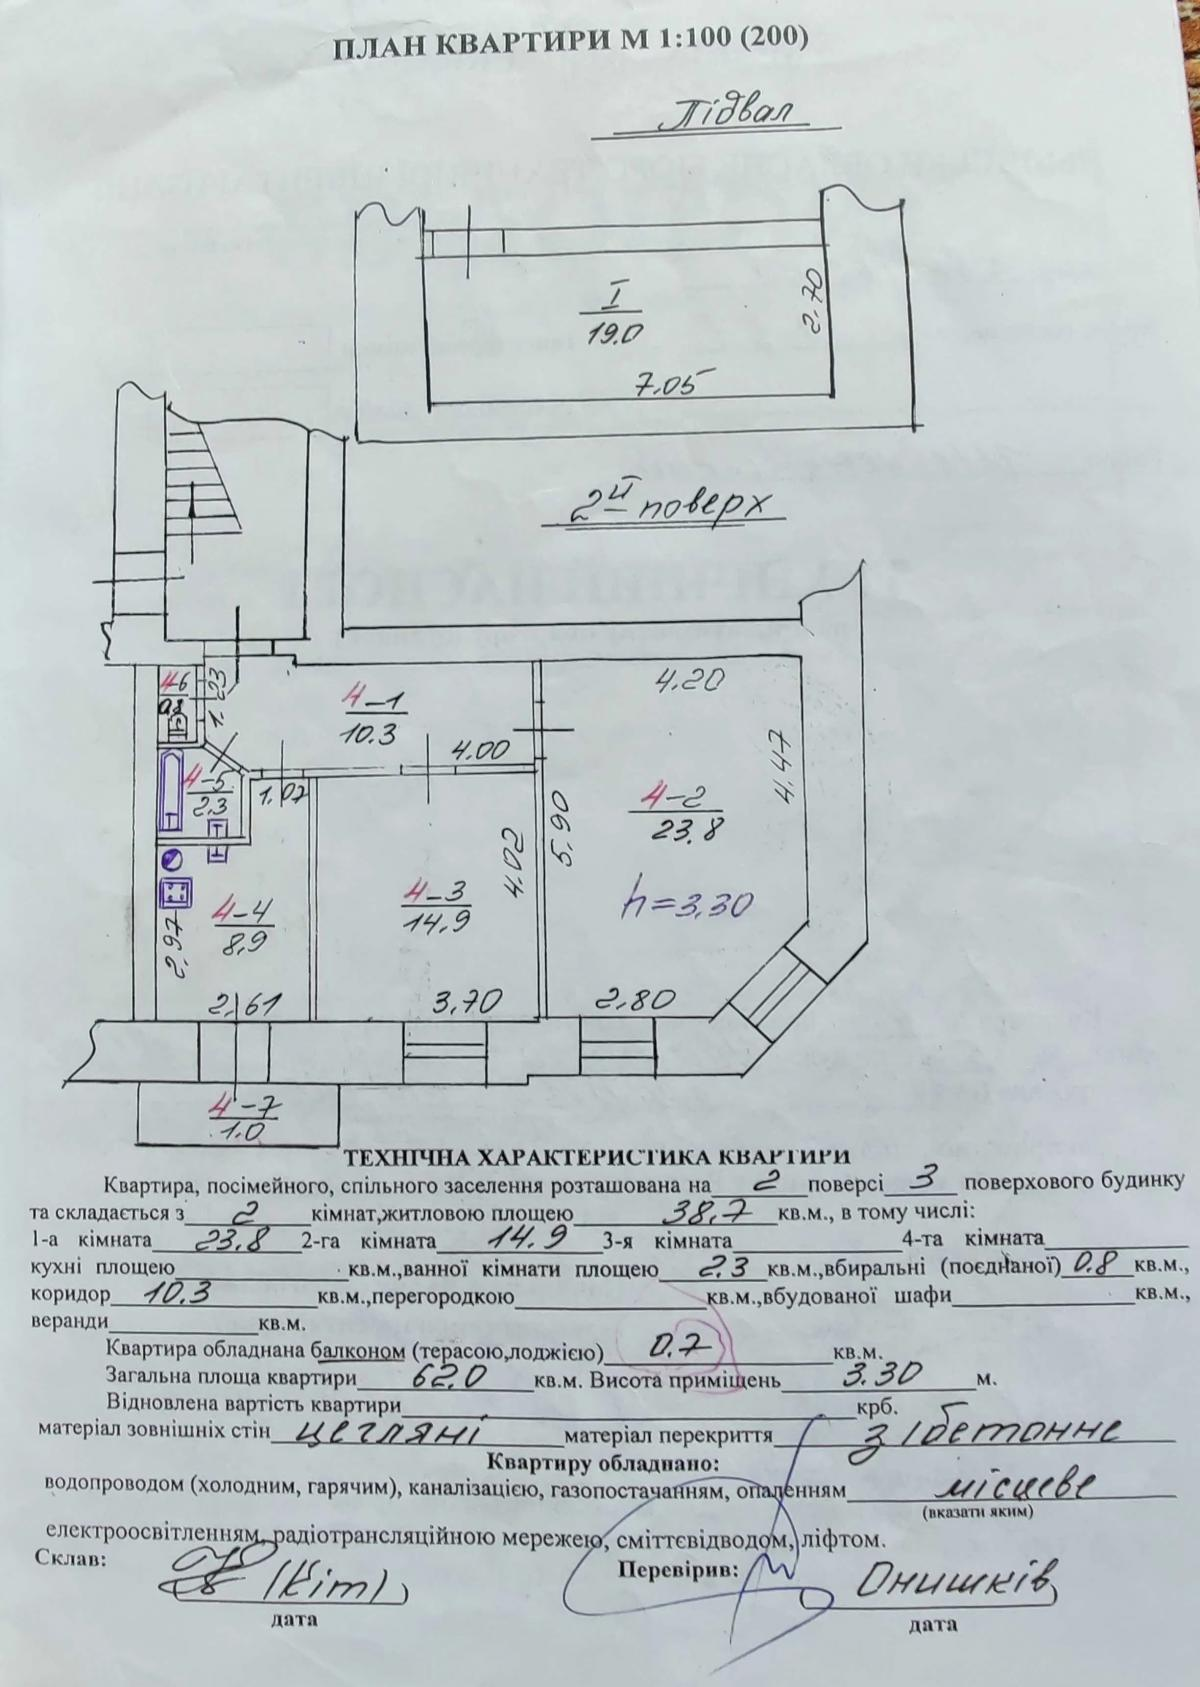 ПЛАН КВАРТИРИ М 1:100 (200)
Підвал
I
19.0
2.70
7.05
2ий поверх
4-6
0.8
1.23
4-1
10.3
4.00
4.20
4.47
4-5
2.3
1.07
4-2
23.8
5.90
4.02
4-3
14.9
h=3.30
4-4
8.9
2.97
2.61
3.70
2.80
4-7
1.0
ТЕХНІЧНА ХАРАКТЕРИСТИКА КВАРТИРИ
Квартира, посімейного, спільного заселення розташована на 2 поверсі 3 поверхового будинку
та складається з 2 кімнат,житловою площею 38,7 кв.м., в тому числі:
1-а кімната 23.8 2-га кімната 14.9 3-я кімната 4-та кімната
кухні площею кв.м.,ванної кімнати площею 2.3 кв.м.,вбиральні (поєднаної) 0.8 кв.м.,
коридор 10.3 кв.м.,перегородкою кв.м.,вбудованої шафи кв.м.,
веранди кв.м.
Квартира обладнана балконом (терасою,лоджією) 0.7 кв.м.
Загальна площа квартири 62.0 кв.м. Висота приміщень 3.30 м.
Відновлена вартість квартири крб.
матеріал зовнішніх стін цегляні матеріал перекриття з/бетонне
Квартиру обладнано:
водопроводом (холодним, гарячим), каналізацією, газопостачанням, опаленням місцеве
(вказати яким)
електроосвітленням, радіотрансляційною мережею, сміттєвідводом, ліфтом.
Склав: (Кіт) Перевірив: Онишків
дата дата